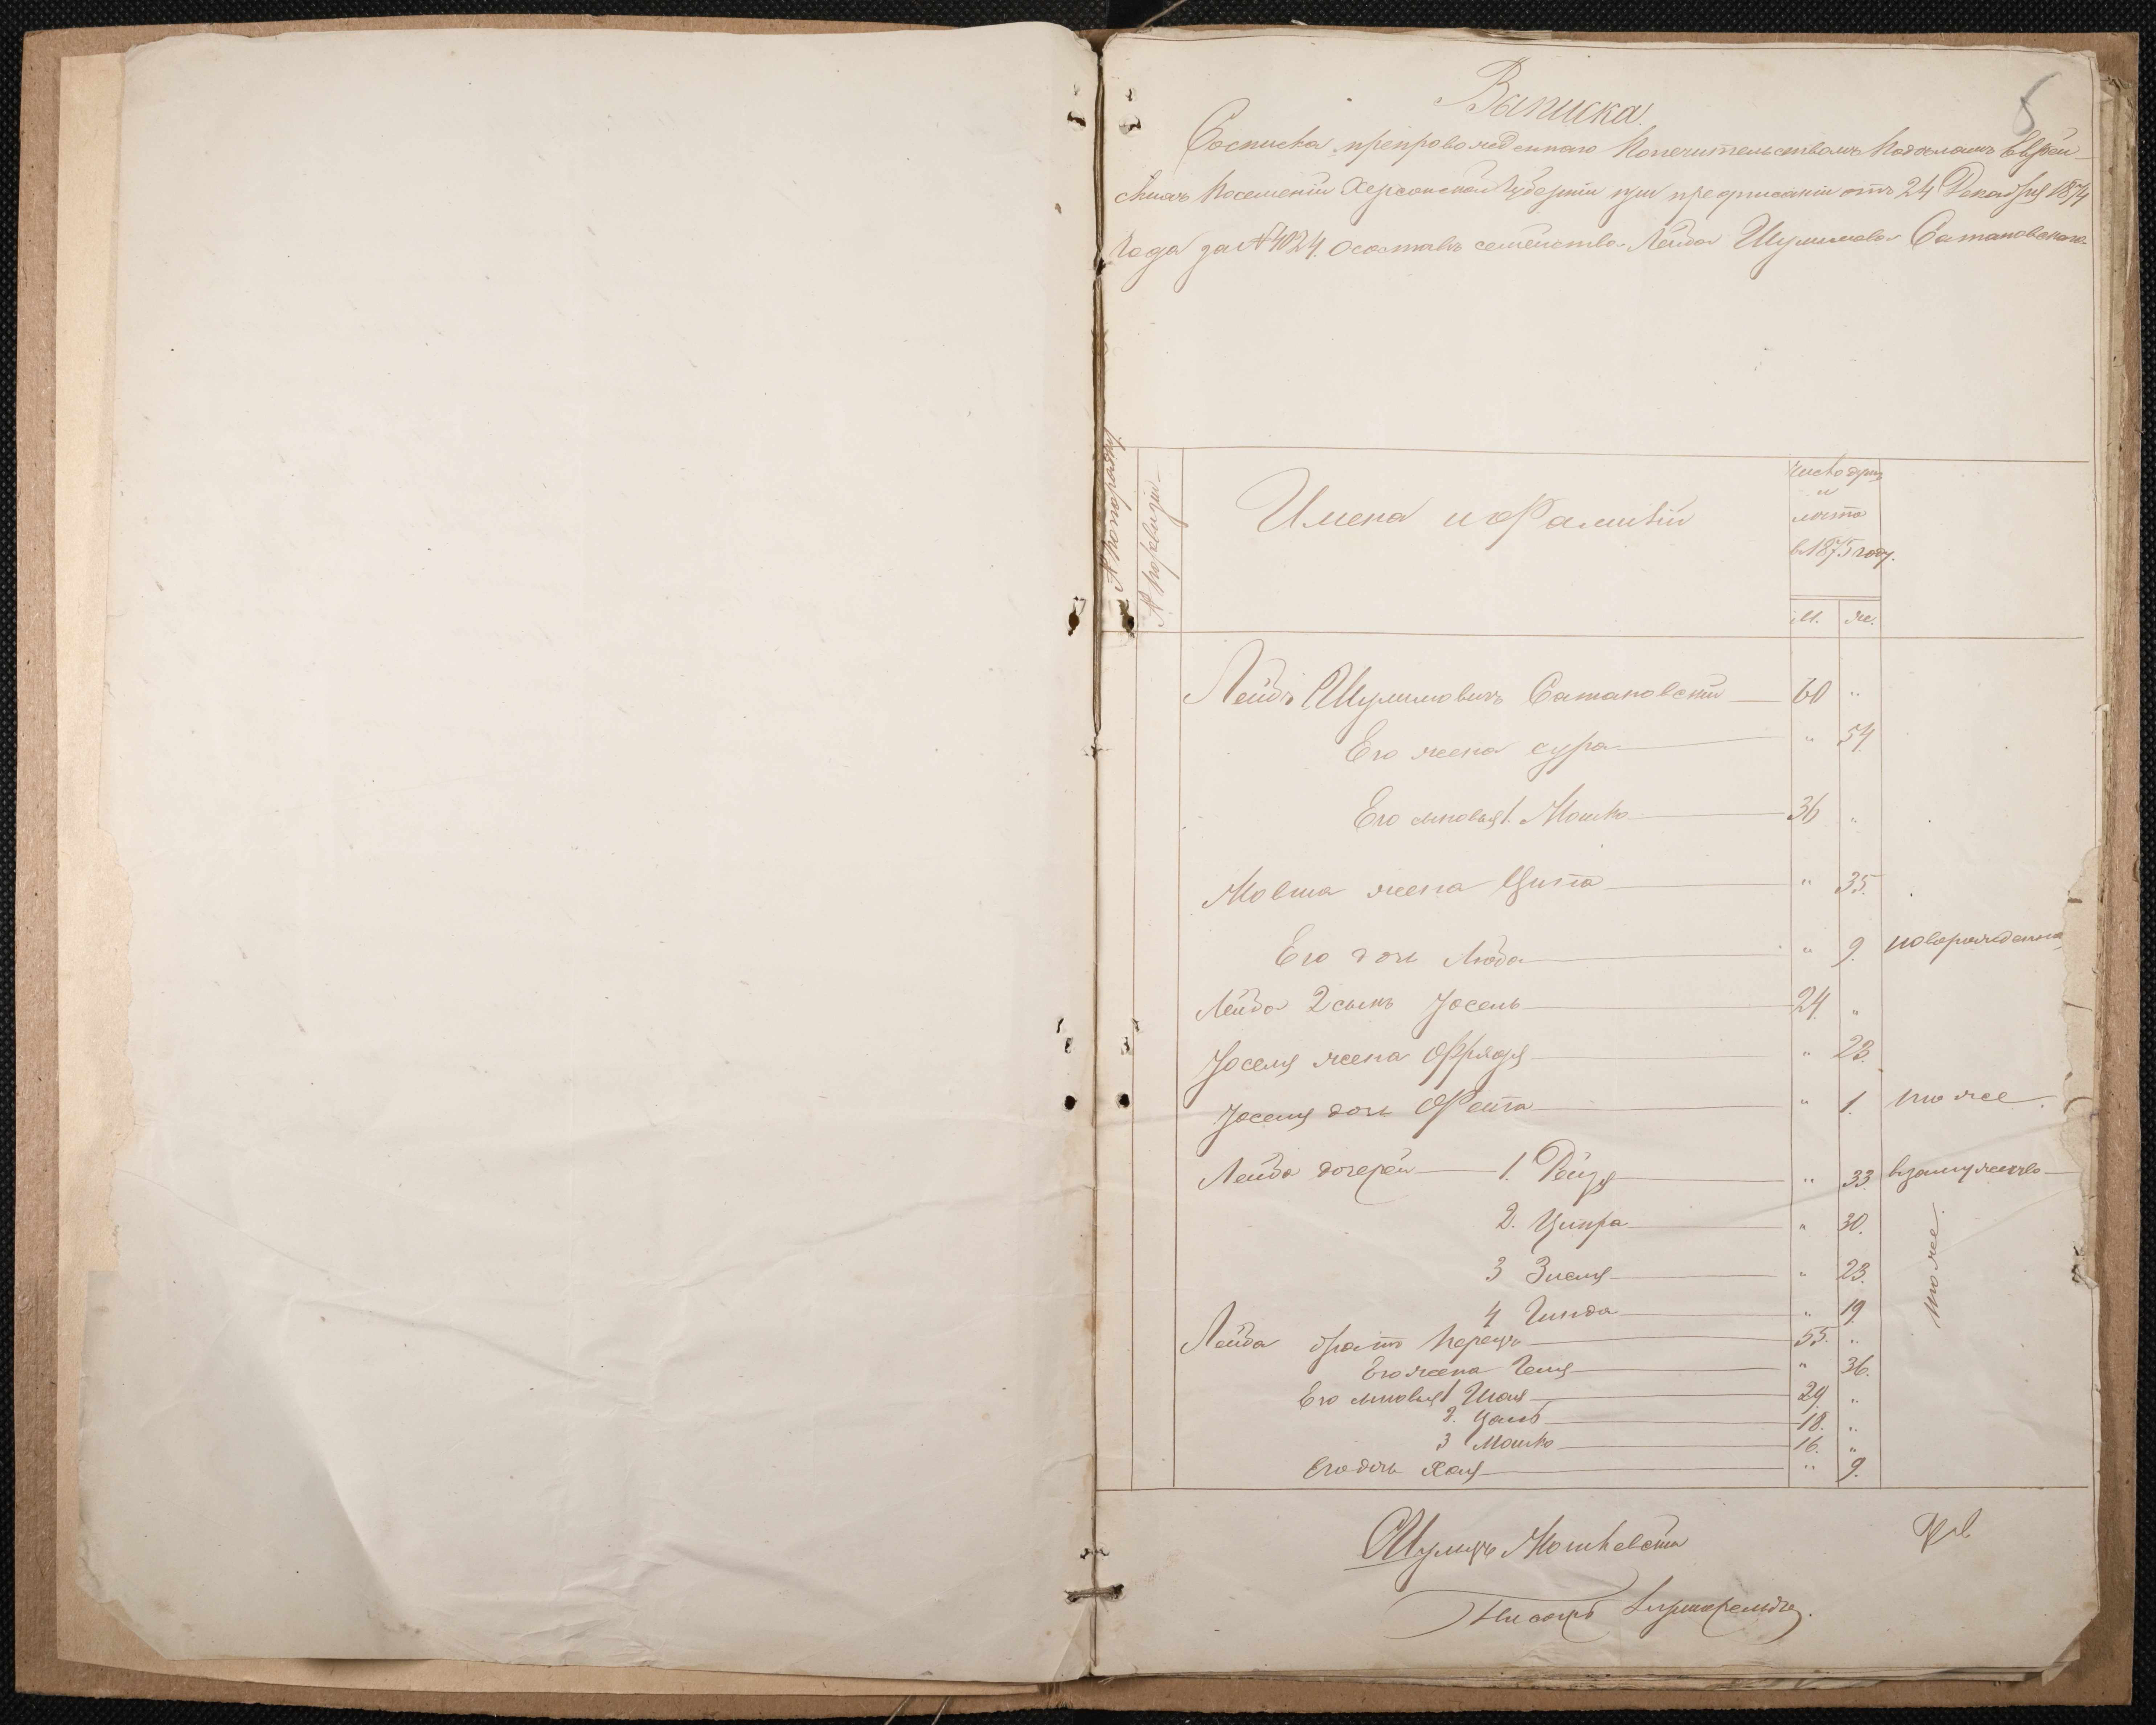 5
Выписка.
Сосписка препровожденнаго Попечительствомъ Надъ Еврей-
скихъ Поселеніи Херсонской Губерніи при предписаніи отъ 24 Декабря 1874
Года за № 4024. Осоставѣ семейства Лейба Шулимова Сатановскаго.
№ Попорядку.
№ Поревизіи
Имена и Фамиліи
Число душъ
и
лѣта
в 1875 году.
М. Ж.
Лейбъ Шулимовичъ Сатановскій 60 "
Его жена сура " 54
Его сыновья 1. Мошко 36 "
Мовша жена Ципа " 35.
Его дочь Люба " 9. новорожденна
Лейба 2 сынъ Іосель 24. "
Іоселя жена Фрядя " 23.
Іоселя дочь Фейга " 1. тоже.
Лейба дочерей 1. Рейзя " 33 взамужество
2. Ципра " 30.
3 Зисля " 23. тоже.
4 Гинда " 19.
Лейба братъ Перецъ 55. "
Его жена Геня " 36.
Его сыновья 1 Шая 29. "
2. 18. "
3 Мошко 16. "
Его дочь Хая " 9.
Шульцъ
Писарь